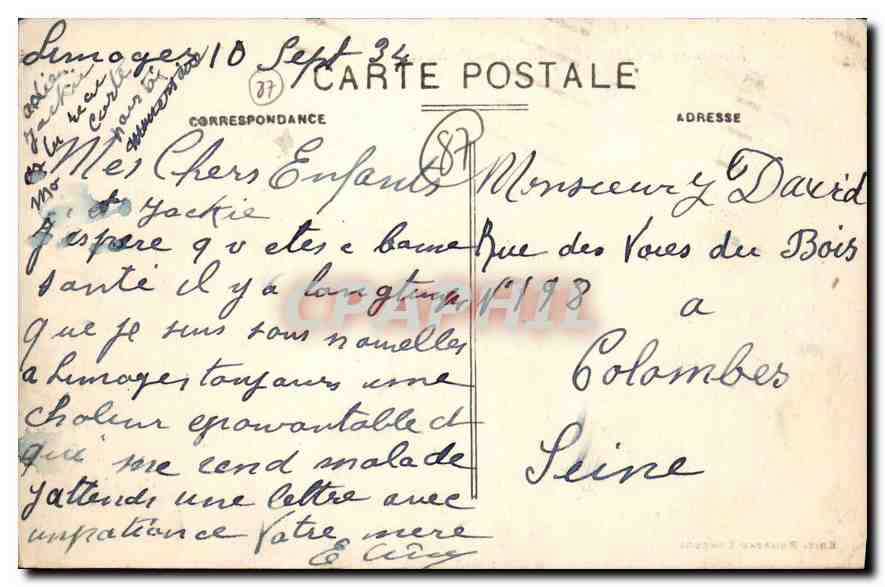 Limoges 10 Sept 34
87
CARTE POSTALE
CORRESPONDANCE
ADRESSE
87
Jackie
Carte
Mes Chers Enfants
et Jackie
J'espere q v etes e bonne
santé il y a longtemps
que je suis sans nouvelles
a Limoges toujours une
chaleur epouvantable et
qui me rend malade
J'attends une lettre avec
impatience Votre mere
E
Monsieur J David
Rue des Voies du Bois
N° 198
a
Colombes
Seine
CPAPHIL